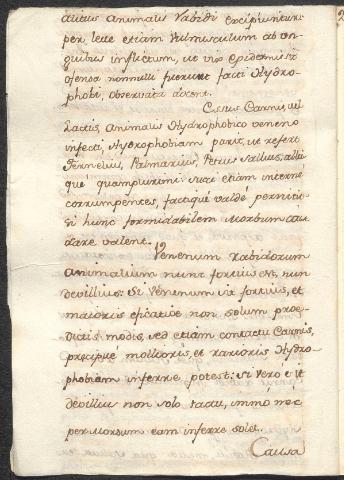 alitus animalis rabidi excipiuntur:
per leve etiam vulnusculum ab un-
guibus inflictum, ut vix epidermis sit
ofensa nonnulli fuerunt facti Hydro-
phobi, observata docent.
Essus Carnis, vel
Lactis, animalis Hydrophobico veneno
infecti, Hydrophobiam parit, ut refert
Fernelius, Palmarius, Petrus Salius, alii
què quamplurimi: succi etiam internè
corrumpentes, factiquè valdè pernitio-
si hunc formidabilem Morbum cau-
sare valent.
Venenum rabidorum
animalium nunc fortius est, nunc
devilius: si venenum sit fortius, et
maioris eficatiae non solum proe-
dictis modis, sed etiam contactu Carnis,
precipuè mollioris, et rarioris Hydro-
phobiam inferre potest: si vero sit
devilius non solo tactu, immò nec
per Morsum eam inferre solet.
Causa